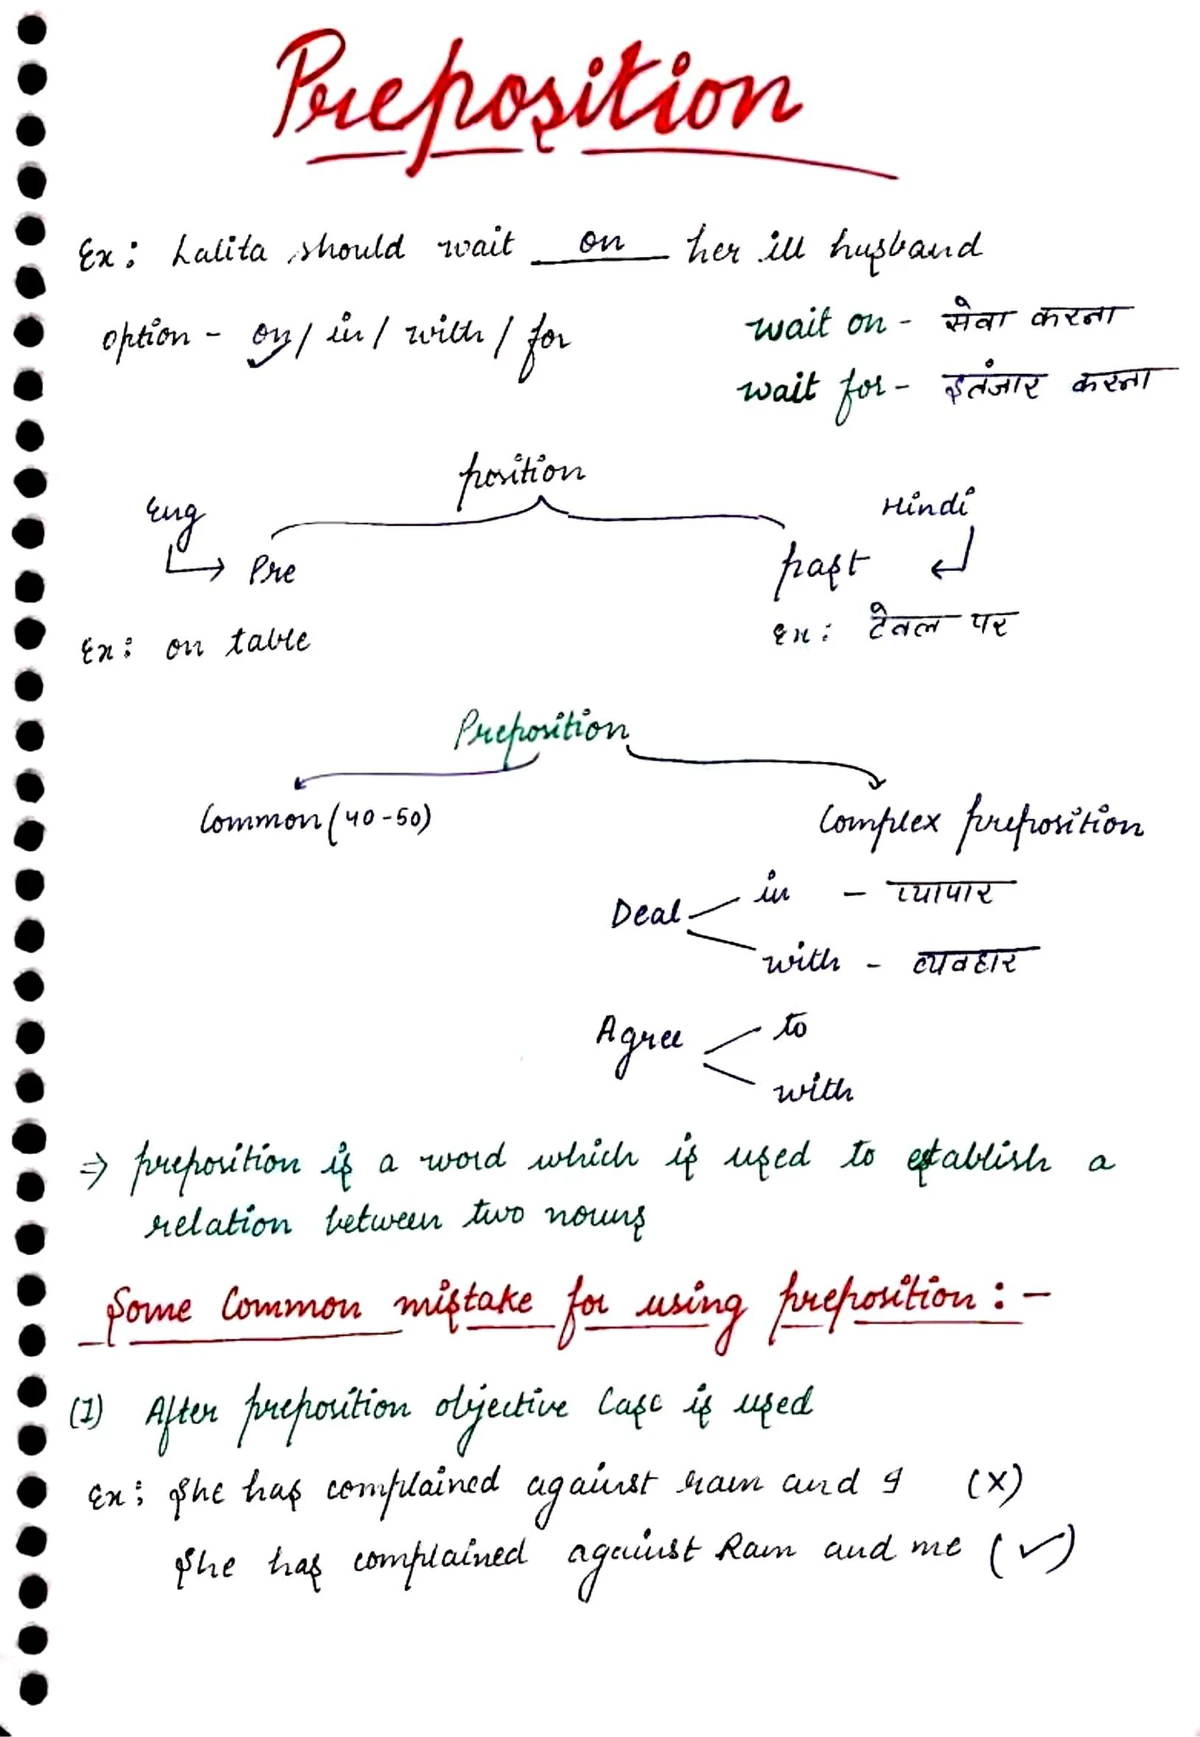 Preposition
Ex: Lalita should wait on her ill husband
option - on / in / with / for
wait on - सेवा करना
wait for - इतंजार करना
position
Eng
Hindi
Pre
past
Ex: on table
Ex: टेवल पर
Preposition
Common (40-50)
Complex preposition
Deal
in - व्यापार
with - व्यवहार
Agree
to
with
⇒ preposition is a word which is used to establish a
relation between two nouns
Some Common mistake for using preposition : -
(1) After preposition objective Case is used
Ex: She has complained against ram and I (X)
She has complained against Ram and me (✓)